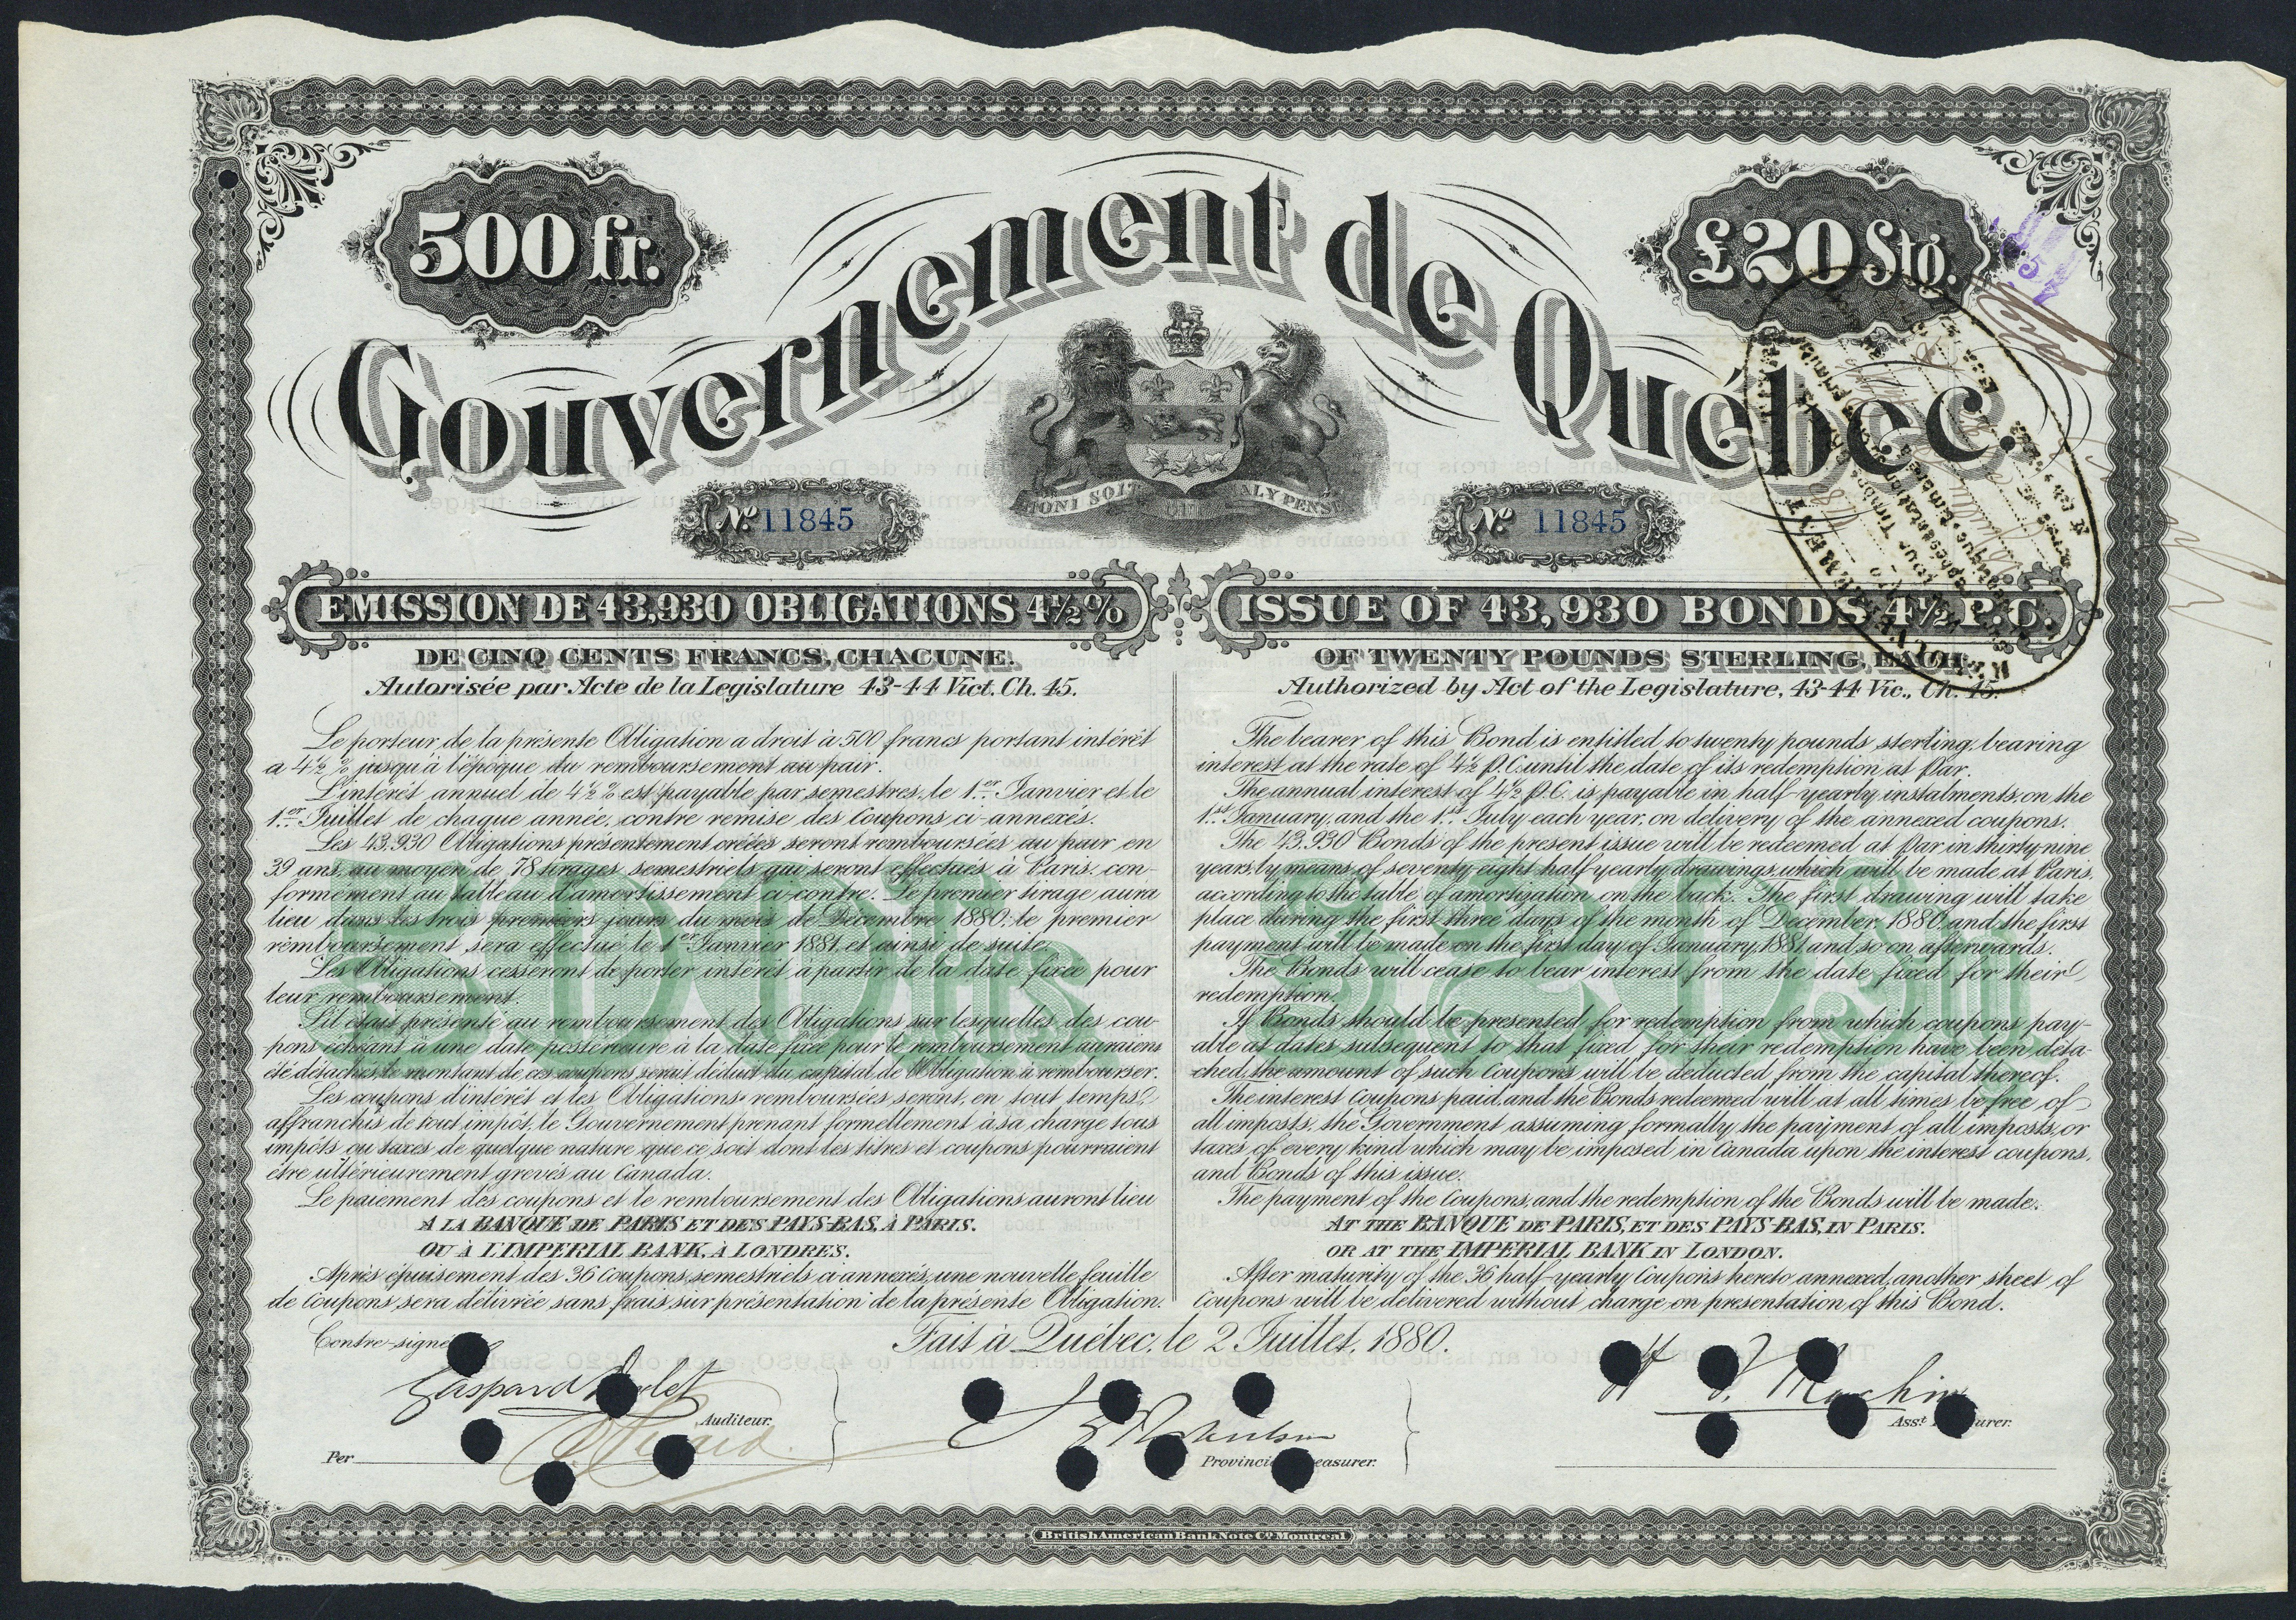 500 fr.
£20 Stg.
Gouvernement de Québec.
HONI SOIT QUI MAL Y PENSE
No. 11845
No. 11845
EMISSION DE 43,930 OBLIGATIONS 4½%
DE CINQ CENTS FRANCS, CHACUNE.
Autorisée par Acte de la Legislature 43-44 Vict. Ch. 45.
Le porteur de la présente Obligation a droit à 500 francs portant intérêt
a 4½ % jusqu'à l'époque du remboursement au pair.
L'intérêt annuel de 4½ % est payable par semestres, le 1er Janvier et le
1er Juillet de chaque année, contre remise des Coupons ci-annexés.
Les 43.930 Obligations présentement créées seront remboursées au pair en
39 ans, au moyen de 78 tirages semestriels qui seront effectués à Paris, con-
formément au tableau d'amortissement ci contre. Le premier tirage aura
lieu dans les trois premiers jours du mois de Décembre 1880, le premier
remboursement sera effectué le 1er Janvier 1881, et ainsi de suite.
Les Obligations cesseront de porter intérêt à partir de la date fixée pour
leur remboursement.
S'il était présenté au remboursement des Obligations sur lesquelles des cou-
pons échéant à une date postérieure à la date fixée pour le remboursement auraient
été détachés, le montant de ces coupons serait déduit du capital de l'Obligation à rembourser.
Les coupons d'intérêt et les Obligations remboursées seront, en tout temps,
affranchis de tout impôt, le Gouvernement prenant formellement à sa charge tous
impôts ou taxes de quelque nature que ce soit dont les titres et coupons pourraient
être ultérieurement grevés au Canada.
Le paiement des coupons et le remboursement des Obligations auront lieu
A LA BANQUE DE PARIS ET DES PAYS-BAS, À PARIS.
OU À L'IMPERIAL BANK, À LONDRES.
Après épuisement des 36 Coupons semestriels ci annexés, une nouvelle feuille
de Coupons sera délivrée sans frais, sur présentation de la présente Obligation.
ISSUE OF 43,930 BONDS 4½ P.C.
OF TWENTY POUNDS STERLING, EACH
Authorized by Act of the Legislature, 43-44 Vic., Ch. 45.
The bearer of this Bond is entitled to twenty pounds sterling, bearing
interest at the rate of 4½ P.C. until the date of its redemption at Par.
The annual interest of 4½ P.C. is payable in half-yearly instalments, on the
1st January, and the 1st July each year, on delivery of the annexed coupons.
The 43.930 Bonds of the present issue will be redeemed at Par in thirty nine
years by means of seventy eight half yearly drawings, which will be made at Paris,
according to the table of amortization on the back. The first drawing will take
place during the first three days of the month of December 1880, and the first
payment will be made on the first day of January, 1881, and so on afterwards.
The Bonds will cease to bear interest from the date fixed for their
redemption.
If Bonds should be presented for redemption from which coupons pay-
able at dates subsequent to that fixed for their redemption have been deta-
ched, the amount of such Coupons will be deducted from the capital thereof.
The interest Coupons paid and the Bonds redeemed will at all times be free of
all imposts, the Government assuming formally the payment of all imposts, or
taxes of every kind which may be imposed in Canada upon the interest coupons,
and Bonds of this issue.
The payment of the Coupons, and the redemption of the Bonds will be made.
AT THE BANQUE DE PARIS, ET DES PAYS-BAS, IN PARIS.
OR AT THE IMPERIAL BANK IN LONDON.
After maturity of the 36 half-yearly Coupons hereto annexed, another sheet of
Coupons will be delivered without charge on presentation of this Bond.
Fait à Québec, le 2 Juillet, 1880.
Contre-signé
Gaspard Drolet
Auditeur.
Per
J G Robertson
Provincial Treasurer.
H T Machin
Asst Treasurer.
British American Bank Note Co. Montreal